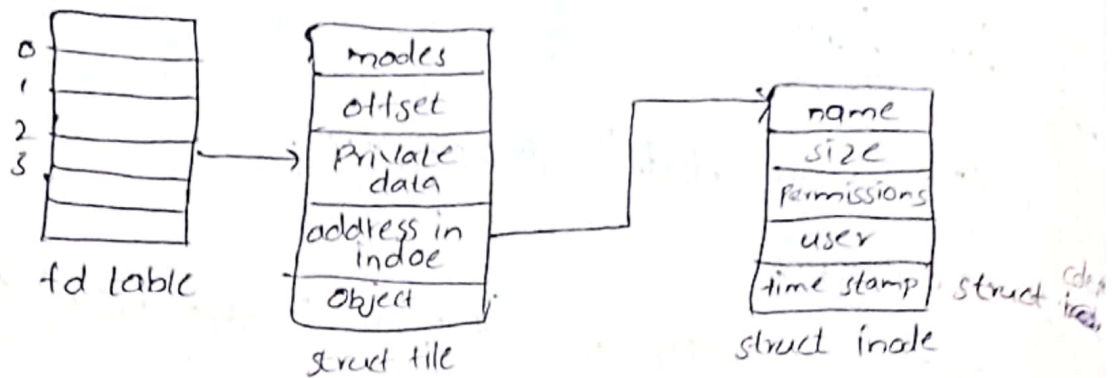 0
1
2
3
fd lable
modes
offset
Private
data
address in
indoe
Object
struct file
name
size
Permissions
user
time stamp
struct inode
struct